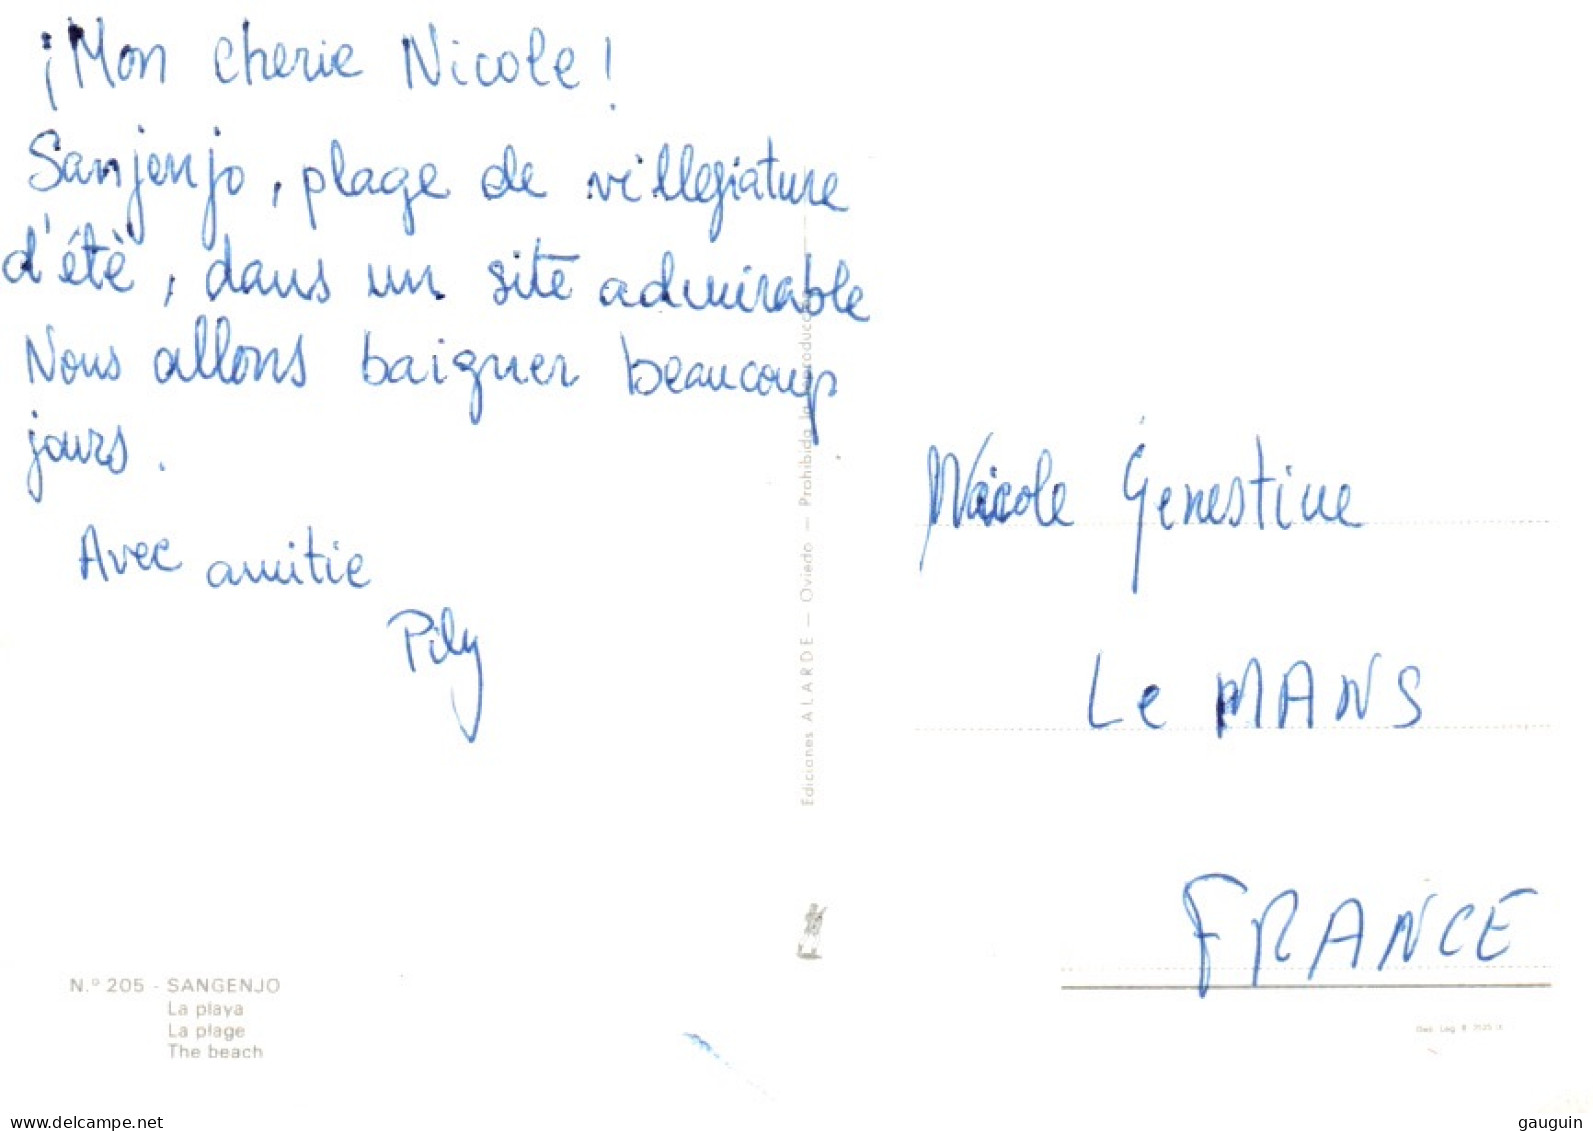 ¡Mon cherie Nicole!
Sanjenjo, plage de villegiature
d'étè, dans un site admirable
Nous allons baigner beaucoup
jours.
Avec amitie
Pily
Nicole Genestine
Le MANS
FRANCE
Ediciones ALARDE — Oviedo — Prohibida la reproducción
N.º 205 - SANGENJO
La playa
La plage
The beach
www.delcampe.net
gauguin